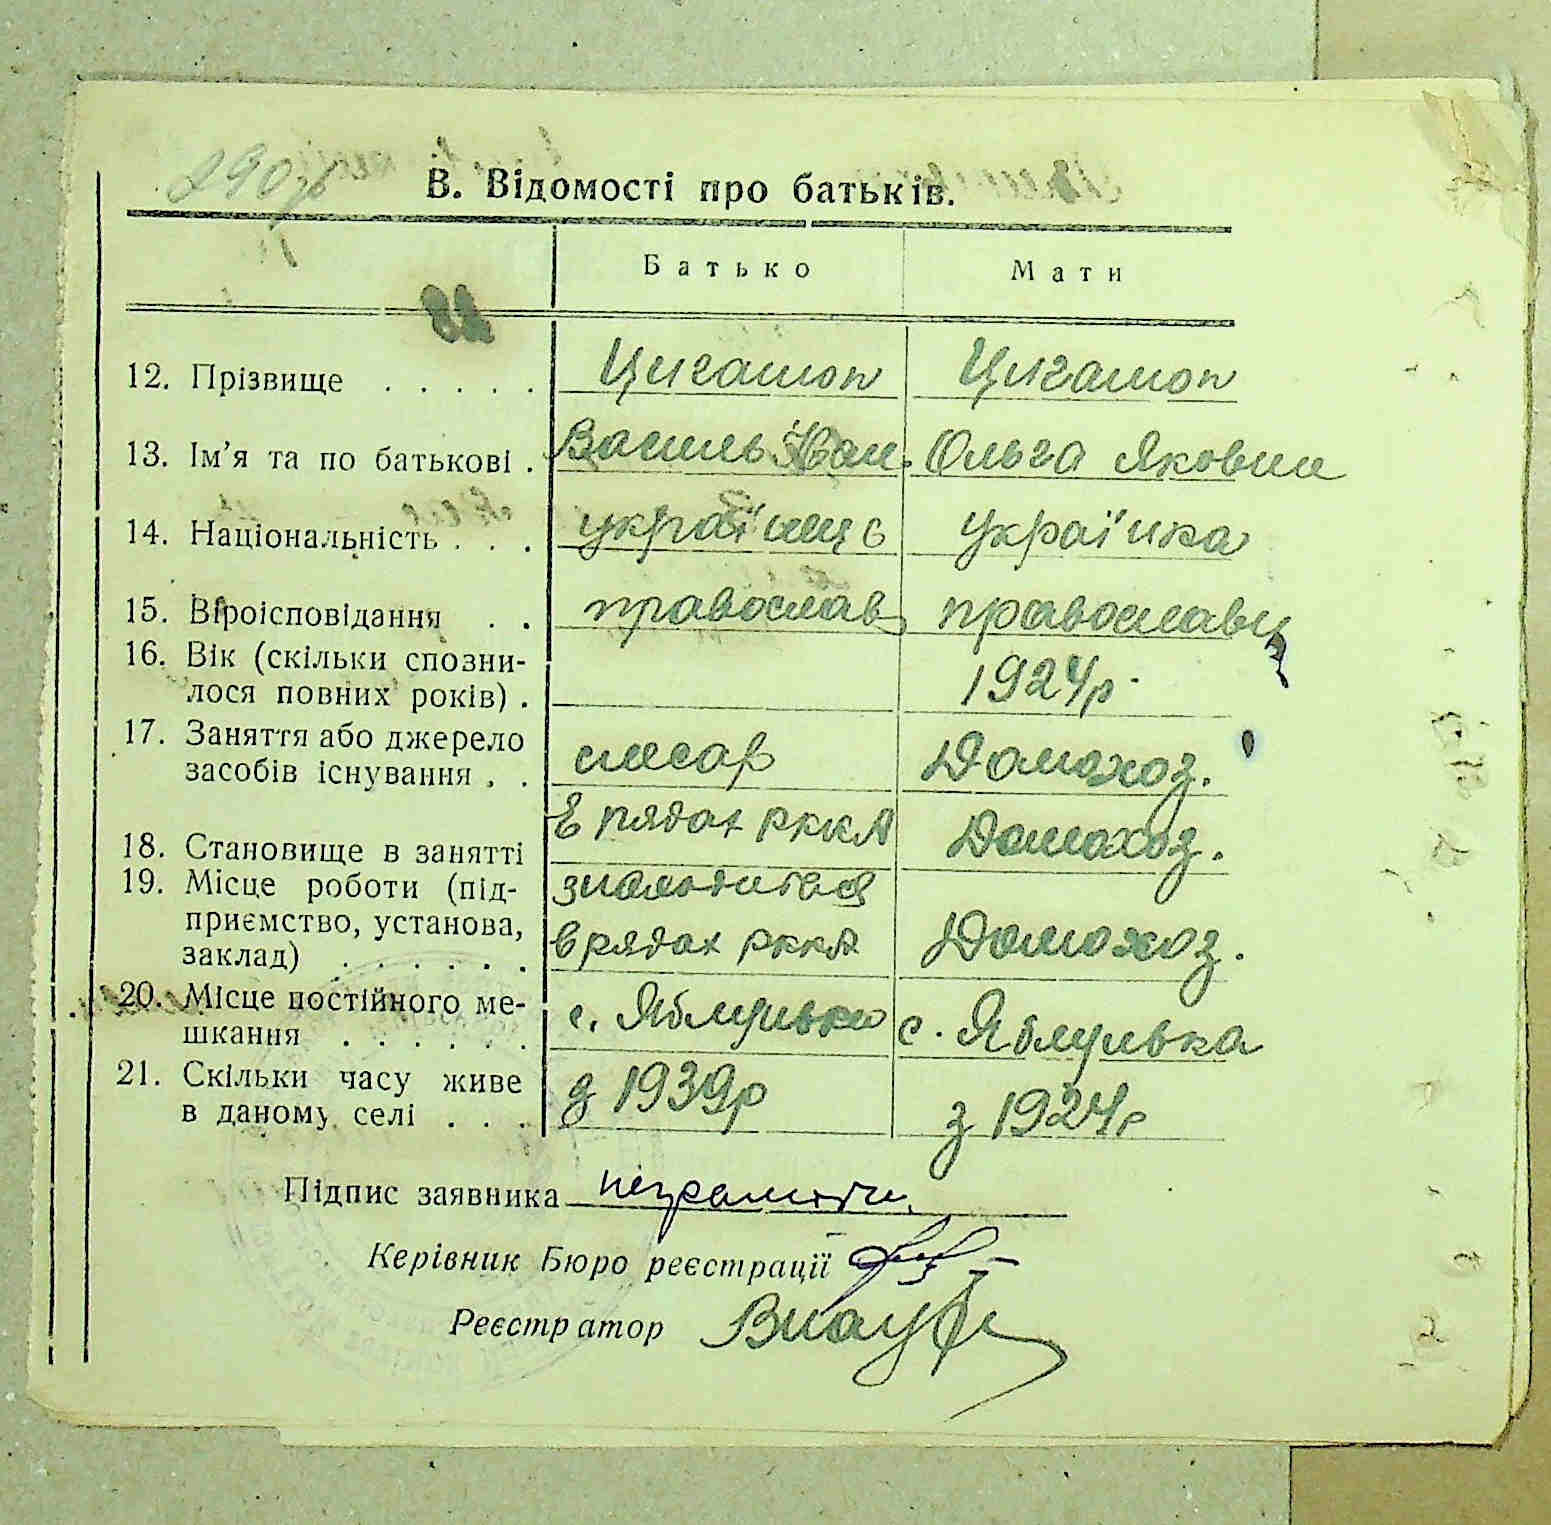 290зв
В. Відомості про батьків.
Батько Мати
12. Прізвище . . . . . Цигашоп Цигашоп
13. Ім'я та по батькові . Василь Іван. Ольга Яковин
14. Національність . . . українец українка
15. Віроісповідання . . православ православн
16. Вік (скільки спозни-
лося повних років) . 1924р.
17. Заняття або джерело
засобів існування . . слесар Домохоз.
18. Становище в занятті В рядах РККА Домохоз.
19. Місце роботи (під- знаходиться
приємство, установа,
заклад) . . . . . . в рядах РККА Домохоз.
20. Місце постійного ме-
шкання . . . . . . с. Яблунька с. Яблунька
21. Скільки часу живе
в даному селі . . . з 1939р з 1924р
Підпис заявника неграмотн.
Керівник Бюро реєстрації
Реєстратор